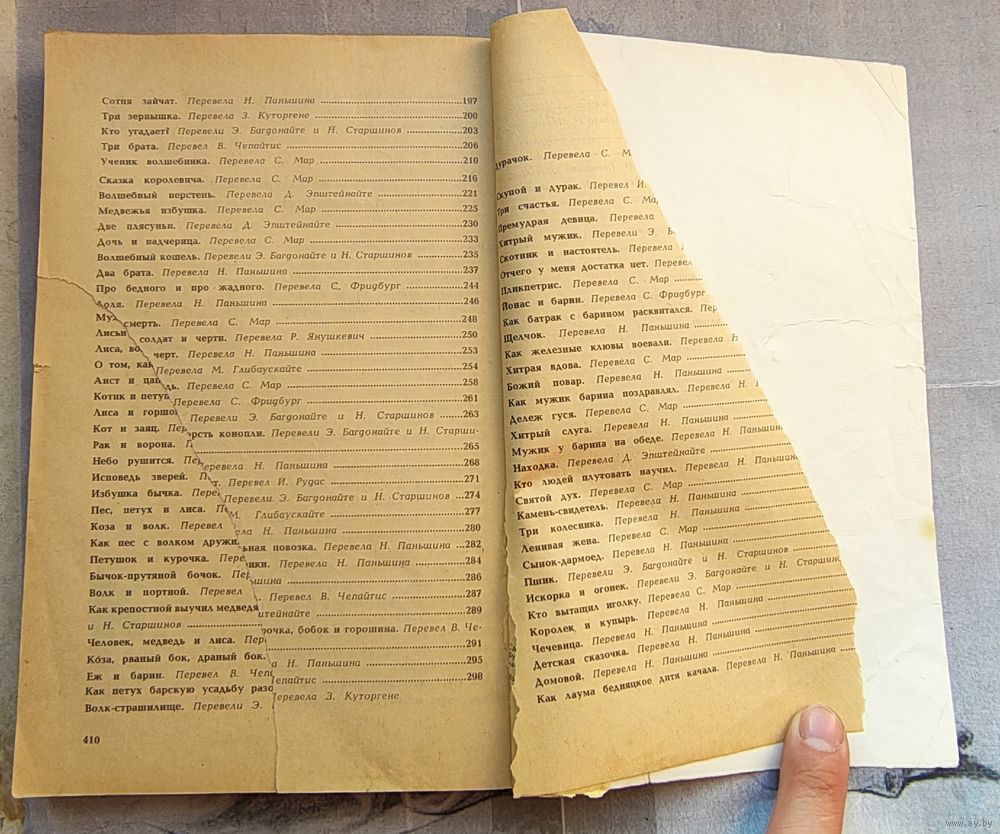 Сотня зайчат. Перевела Н. Паньшина ...197
Три зернышка. Перевела З. Куторгене ...200
Кто угадает? Перевели Э. Багдонайте и Н. Старшинов ...203
Три брата. Перевел В. Чепайтис ...206
Ученик волшебника. Перевела С. Мар ...210
Сказка королевича. Перевела С. Мар ...216
Волшебный перстень. Перевела Д. Эпштейнайте ...221
Медвежья избушка. Перевела С. Мар ...225
Две плясуньи. Перевела Д. Эпштейнайте ...230
Дочь и падчерица. Перевела С. Мар ...233
Волшебный кошель. Перевели Э. Багдонайте и Н. Старшинов ...235
Два брата. Перевела Н. Паньшина ...237
Про бедного и про жадного. Перевела С. Фридбург ...244
Доля. Перевела Н. Паньшина ...246
смерть. Перевела С. Мар ...248
Лисы солдат и черти. Перевела Р. Янушкевич ...250
Лиса, во черт. Перевела Н. Паньшина ...253
О том, как Перевела М. Глибаускайте ...254
Аист и цап дь. Перевела С. Мар ...258
Котик и петуш Перевела С. Фридбург ...261
Лиса и горшо Перевели Э. Багдонайте и Н. Старшинов ...263
Кот и заяц. Пер рсть конопли. Перевели Э. Багдонайте и Н. Старши-
Рак и ворона. ...265
Небо рушится. Пер еревела Н. Паньшина ...268
Исповедь зверей. т. Перевел И. Рудас ...271
Избушка бычка. Пере Перевели Э. Багдонайте и Н. Старшинов ...274
Пес, петух и лиса. М. Глибаускайте ...277
Коза и волк. Перевел ела Н. Паньшина ...280
Как пес с волком дружи льная повозка. Перевела Н. Паньшина ...282
Петушок и курочка. Пере ики. Перевела Н. Паньшина ...284
Бычок-прутяной бочок. Пе ьшина ...286
Волк и портной. Перевел Перевел В. Чепайтис ...287
Как крепостной выучил медведя тейнайте ...289
и Н. Старшинов ... рочка, бобок и горошина. Перевел В. Че-
Человек, медведь и лиса. Пер ...291
Коза, рваный бок, драный бок. а Н. Паньшина ...295
Еж и барин. Перевел В. Чеп епайтис ...298
Как петух барскую усадьбу разо еревела З. Куторгене
Волк-страшилище. Перевели Э.
410
дурачок. Перевела С. М
Скупой и дурак. Перевел И.
Три счастья. Перевела С. Ма
Премудрая девица. Перевела
Хитрый мужик. Перевели Э. Б
Скотник и настоятель. Перевела
Отчего у меня достатка нет. Перевел
Пликпетрис. Перевела С. Мар
Йонас и барин. Перевела С. Фридбург
Как батрак с барином расквитался. Пер
Щелчок. Перевела Н. Паньшина
Как железные клювы воевали. Перевела Н
Хитрая вдова. Перевела С. Мар
Божий повар. Перевела Н. Паньшина
Как мужик барина поздравлял. Перевела Н.
Дележ гуся. Перевела С. Мар
Хитрый слуга. Перевела Н. Паньшина
Мужик у барина на обеде. Перевела Н. Паньши
Находка. Перевела Д. Эпштейнайте
Кто людей плутовать научил. Перевела Н. Паньшин
Святой дух. Перевела С. Мар
Камень-свидетель. Перевела Н. Паньшина
Три колесника. Перевела Н. Паньшина
Ленивая жена. Перевела С. Мар
Сынок-дармоед. Перевела Н. Паньшина
Пшик. Перевели Э. Багдонайте и Н. Старшинов
Искорка и огонек. Перевели Э. Багдонайте и Н. Старшино
Кто вытащил иголку. Перевела С. Мар
Королек и купырь. Перевела Н. Паньшина
Чечевица. Перевела Н. Паньшина
Детская сказочка. Перевела Н. Паньшина
Домовой. Перевела Н. Паньшина
Как лаума бедняцкое дитя качала. Перевела Н. Паньшина
www.ay.by